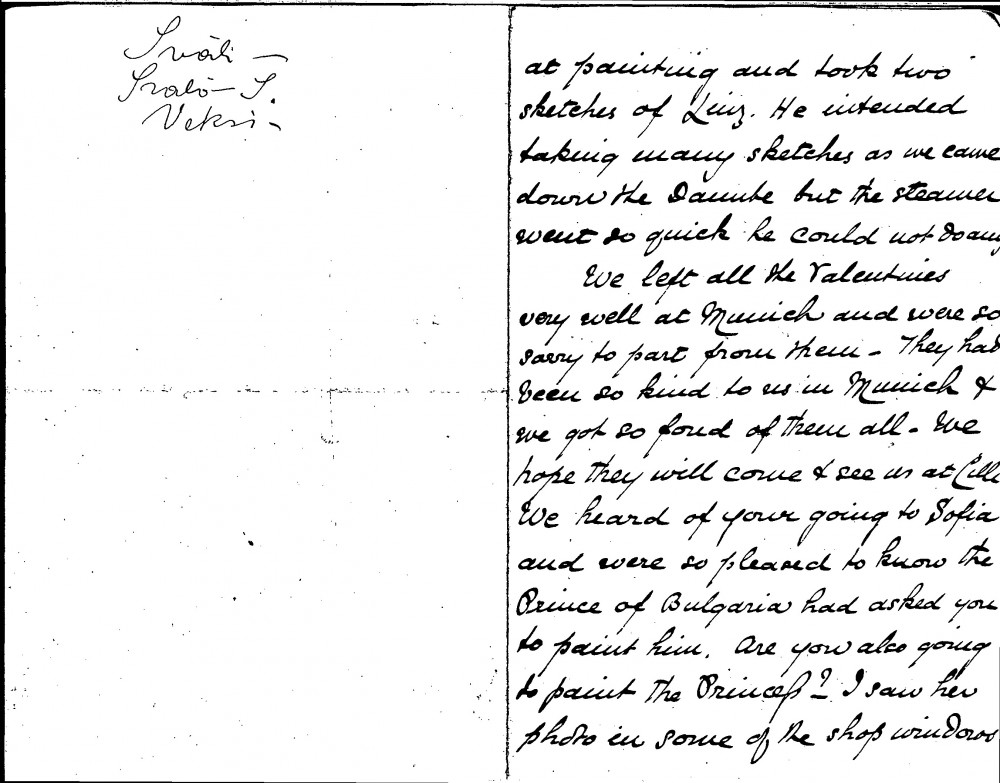 at painting and took two
sketches of Linz. He intended
taking many sketches as we came
down the Danube but the steamer
went so quick he could not do any
We left all the Valentines
very well at Munich and were so
sorry to part from them - They had
been so kind to us in Munich &
we got so fond of them all - We
hope they will come & see us at Cilli
We heard of your going to Sofia
and were so pleased to know the
Prince of Bulgaria had asked you
to paint him. Are you also going
to paint the Princess? I saw her
photo in some of the shop windows